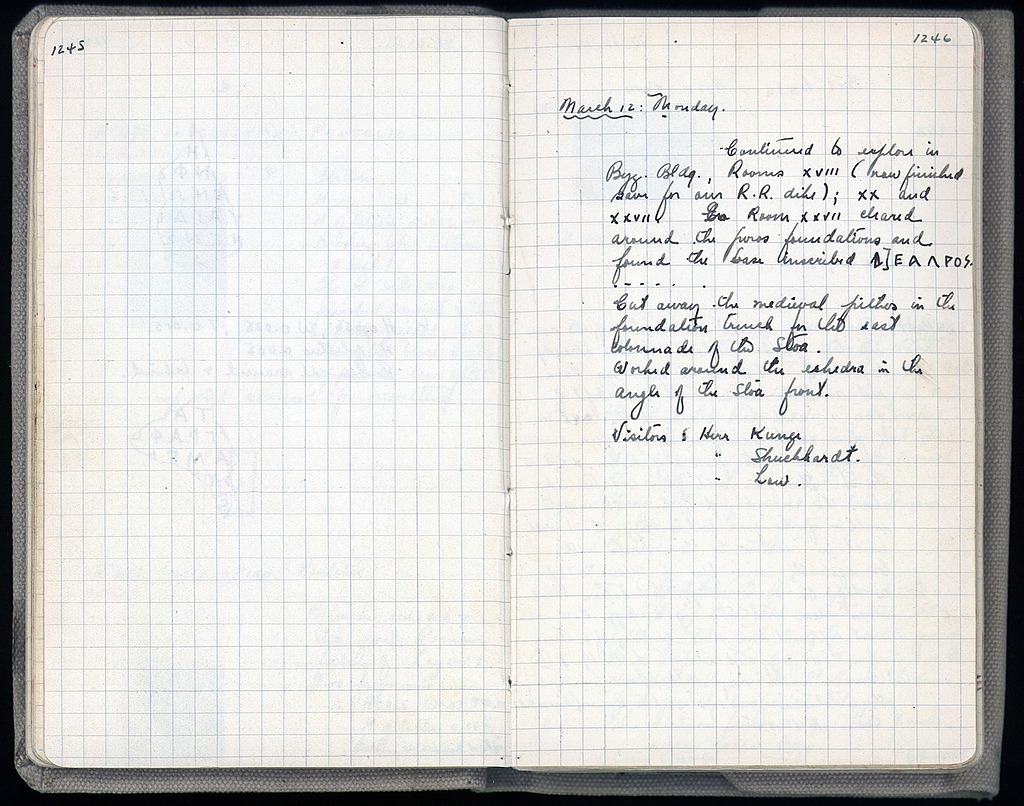 1245
1246
March 12: Monday.
Continued to explore in
Byz. Bldg., Rooms XVIII (now finished
save for our R.R. dike); XX and
XXVII. Room XXVII cleared
around the poros foundations and
found the base inscribed Δ]ΕΑΛΡΟΣ.
. - - - . .
Cut away the medieval pithos in the
foundation trench for the east
colonnade of the Stoa.
Worked around the exhedra in the
angle of the Stoa front.
Visitors: Herr Kunze
" Shuchhardt.
" Law.